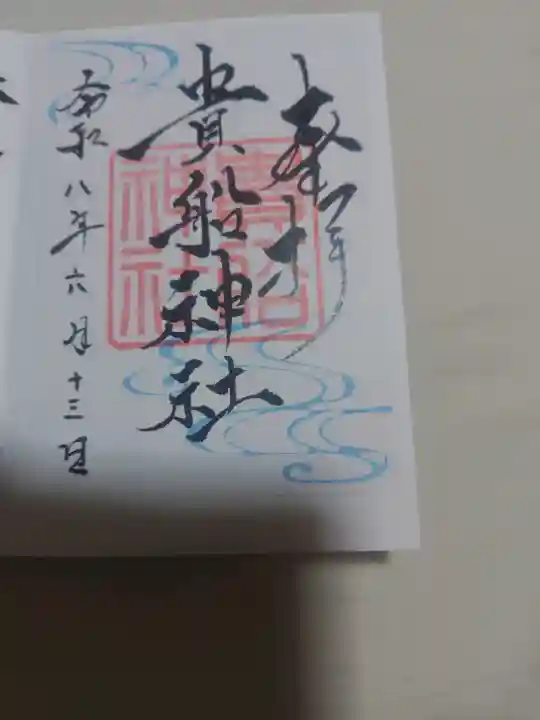 奉拝
貴船神社
貴船神社
令和八年六月十三日